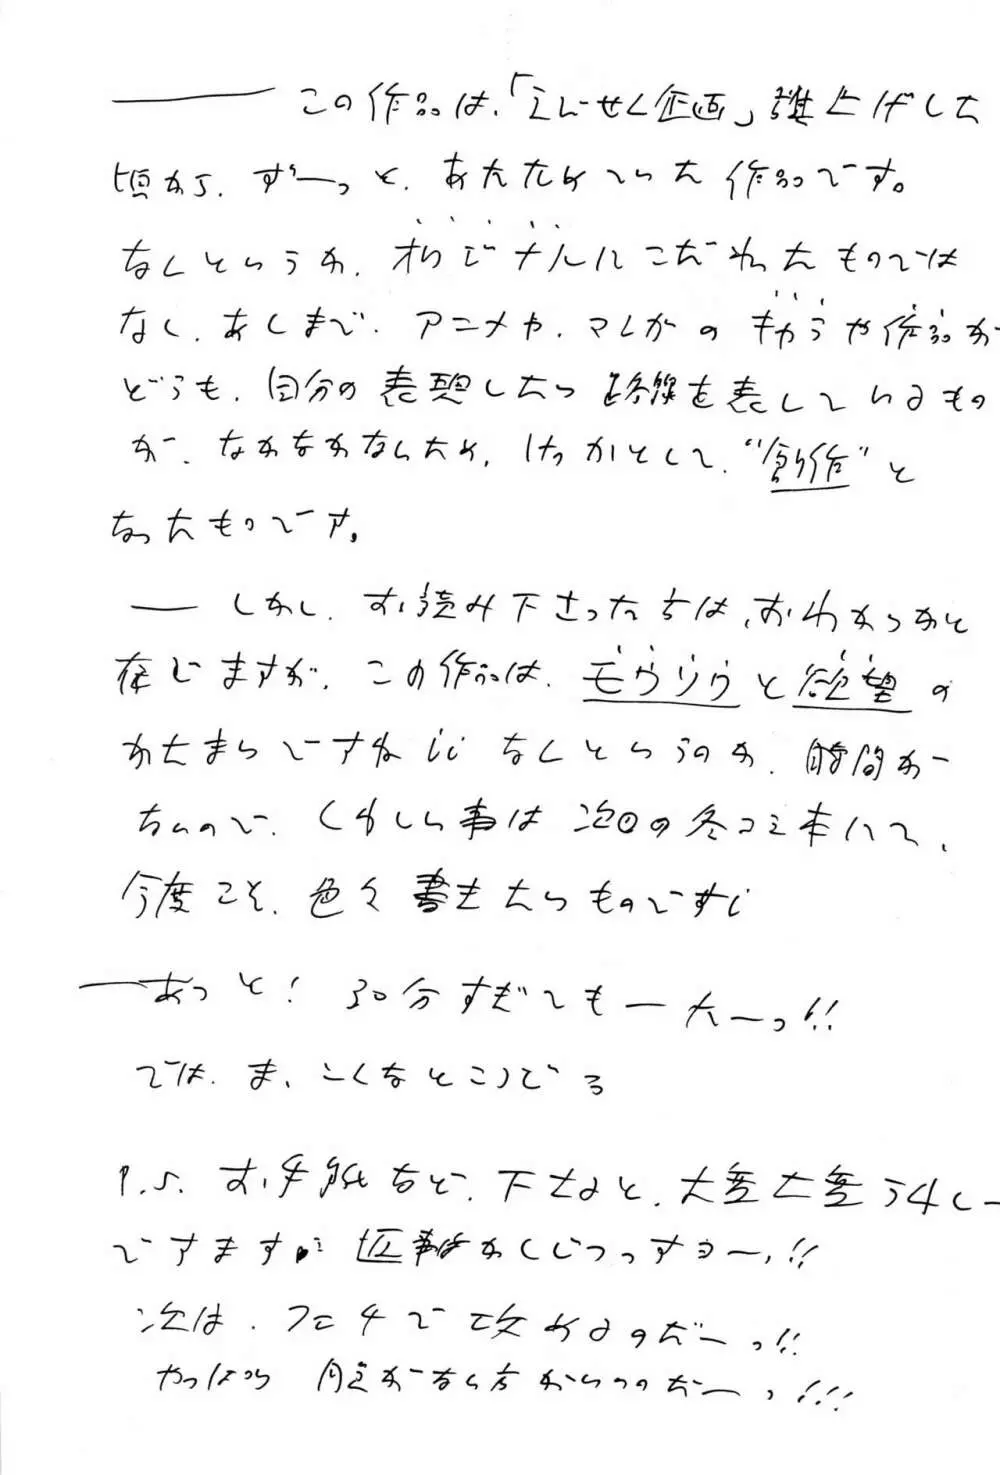 この作品は、「えんせく企画」旗上げした
頃から、ずーっと、あたためていた作品です。
なんというか、オリジナルにこだわったものでは
なく、あくまで、アニメや、マンガのキャラや作品が
どうも、自分の表現したい路線を表しているもの
が、なかなかないため、けっかとして、“創作”と
なったものです。
しかし、お読み下さった方は、おわかりかと
存じますが、この作品は、モウソウと欲望の
かたまりですね!! なんというのか、時間が
ないので、くわしい事は次回の冬コミ本にて、
今度こそ、色々書きたいものです!
あっと! 30分すぎてもーたーっ!!
では、ま、こんなところでる
P.S. お手紙など、下さると、大変大変うれし
です 返事はかくじつっすョー!!
次は、フェチで攻めるのだーっ!!
やっぱり がない方がいいのだーっ!!!